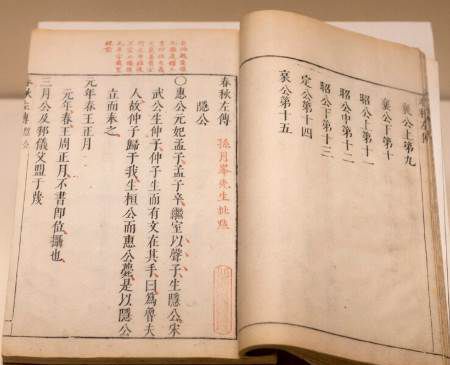 襄公上第九
襄公下第十
昭公上第十一
昭公中第十二
昭公下第十三
定公第十四
哀公第十五
春秋左傳
孫月峯先生批點
隱公
○惠公元妃孟子孟子卒繼室以聲子生隱公宋
武公生仲子仲子生而有文在其手曰爲魯夫
人故仲子歸于我生桓公而惠公薨是以隱公
立而奉之
元年春王正月
元年春王周正月不書卽位攝也
三月公及邾儀父盟于蔑
春秋左傳